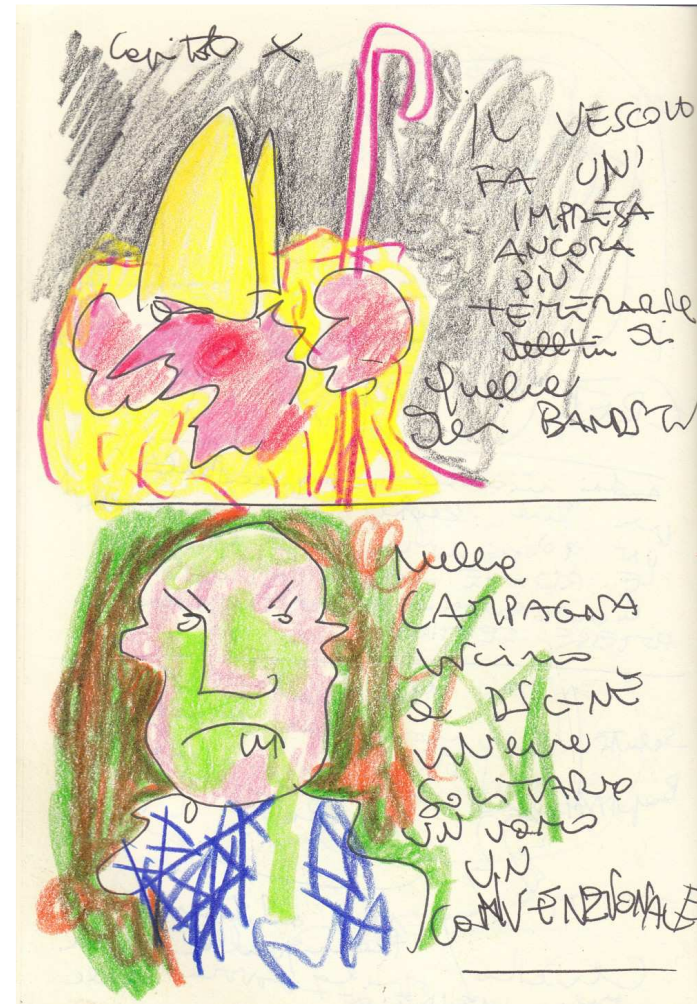 Capitolo X
IL VESCOVO
FA UN'
IMPRESA
ANCORA
PIÙ
TEMERARIA
di
quella
dei BANDITI
nella
CAMPAGNA
vicino
a DIGNE
viveva
SOLITARIO
UN UOMO
UN
CONVENZIONALE